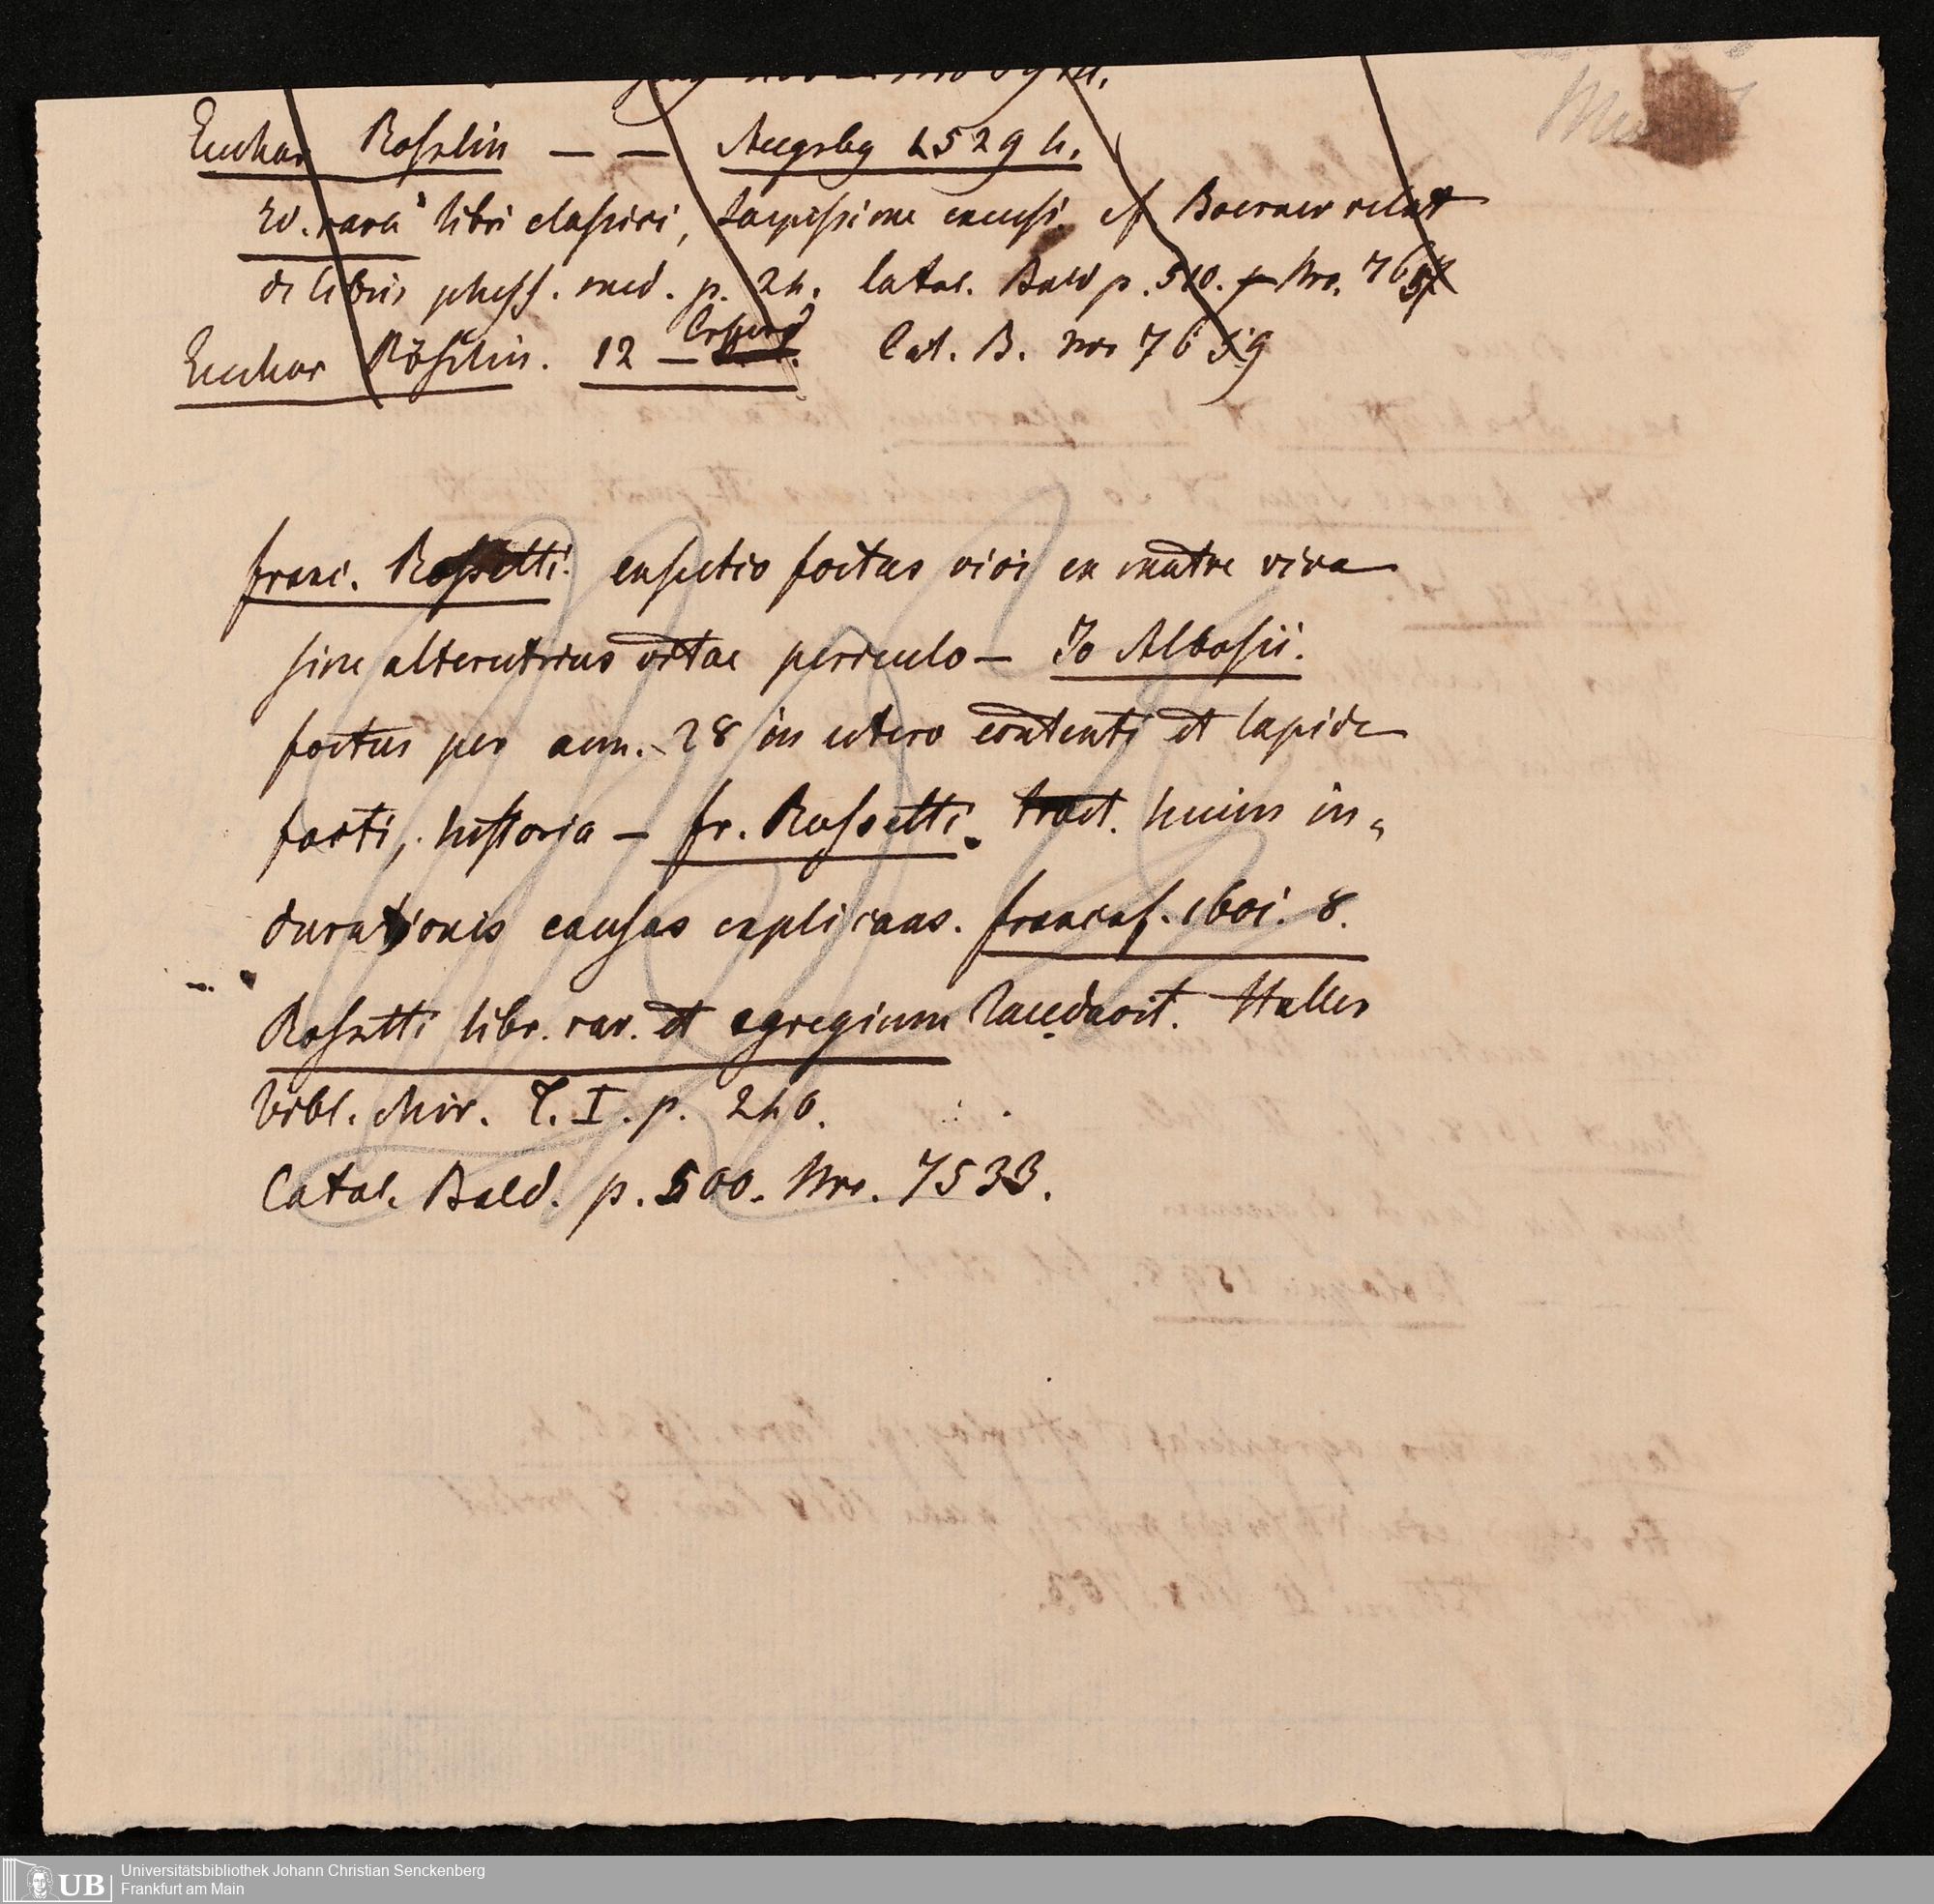 Euchar Rosslin — — Augsbg 1529 4.
Ed. rara libri classici, saepissime excusi. cf Boerner relat
de libris physs. med. p. 24. Catal. Bald p. 510. Nro. 7657
Euchar Rösslin. 12 — Cat. B. nro 7659
franc. Rossetti. exsectio foetus vivi ex matre viva
sine alterutrius vitae periculo — Jo Albosii.
foetus per ann. 28 in utero contenti et lapide
facti, historia — fr. Rossetti. tract. huius in„
durationis causas explicans. francof. 1601. 8.
Rossetti libr. rar. et egregium laudavit. Haller
Bibl. chir. T. I. p. 240.
Catal. Bald. p. 500. Nro. 7533.
Universitätsbibliothek Johann Christian Senckenberg
Frankfurt am Main
UB